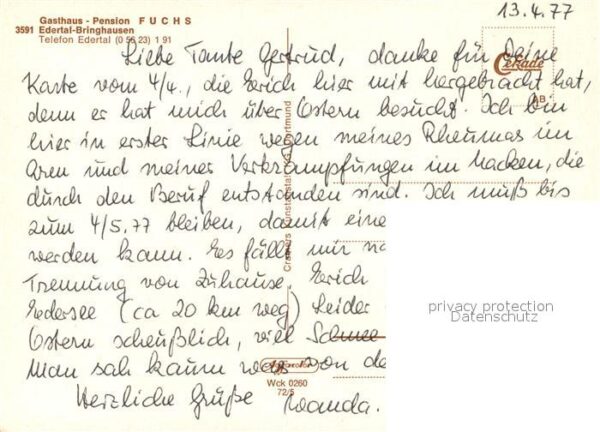 13.4.77
Gasthaus - Pension FUCHS
3591 Edertal-Bringhausen
Telefon Edertal (0 56 23) 1 91
Cekade
Liebe Tante Gertrud, danke für Deine
Karte vom 4/4., die Erich hier mit hergebracht hat,
denn er hat mich über Ostern besucht. Ich bin
hier in erster Linie wegen meines Rheumas im
Arm und meiner Verkrampfungen im Nacken, die
durch den Beruf entstanden sind. Ich muß bis
zum 4/5.77 bleiben, damit eine
werden kann. Es fällt mir
Trennung von Zuhause. Erich
Edersee (ca 20 km weg) Leider
Ostern scheußlich, viel Schnee
Man sah kaum was von
Herzliche Grüße Wanda.
privacy protection
Datenschutz
Wck 0260
72/5